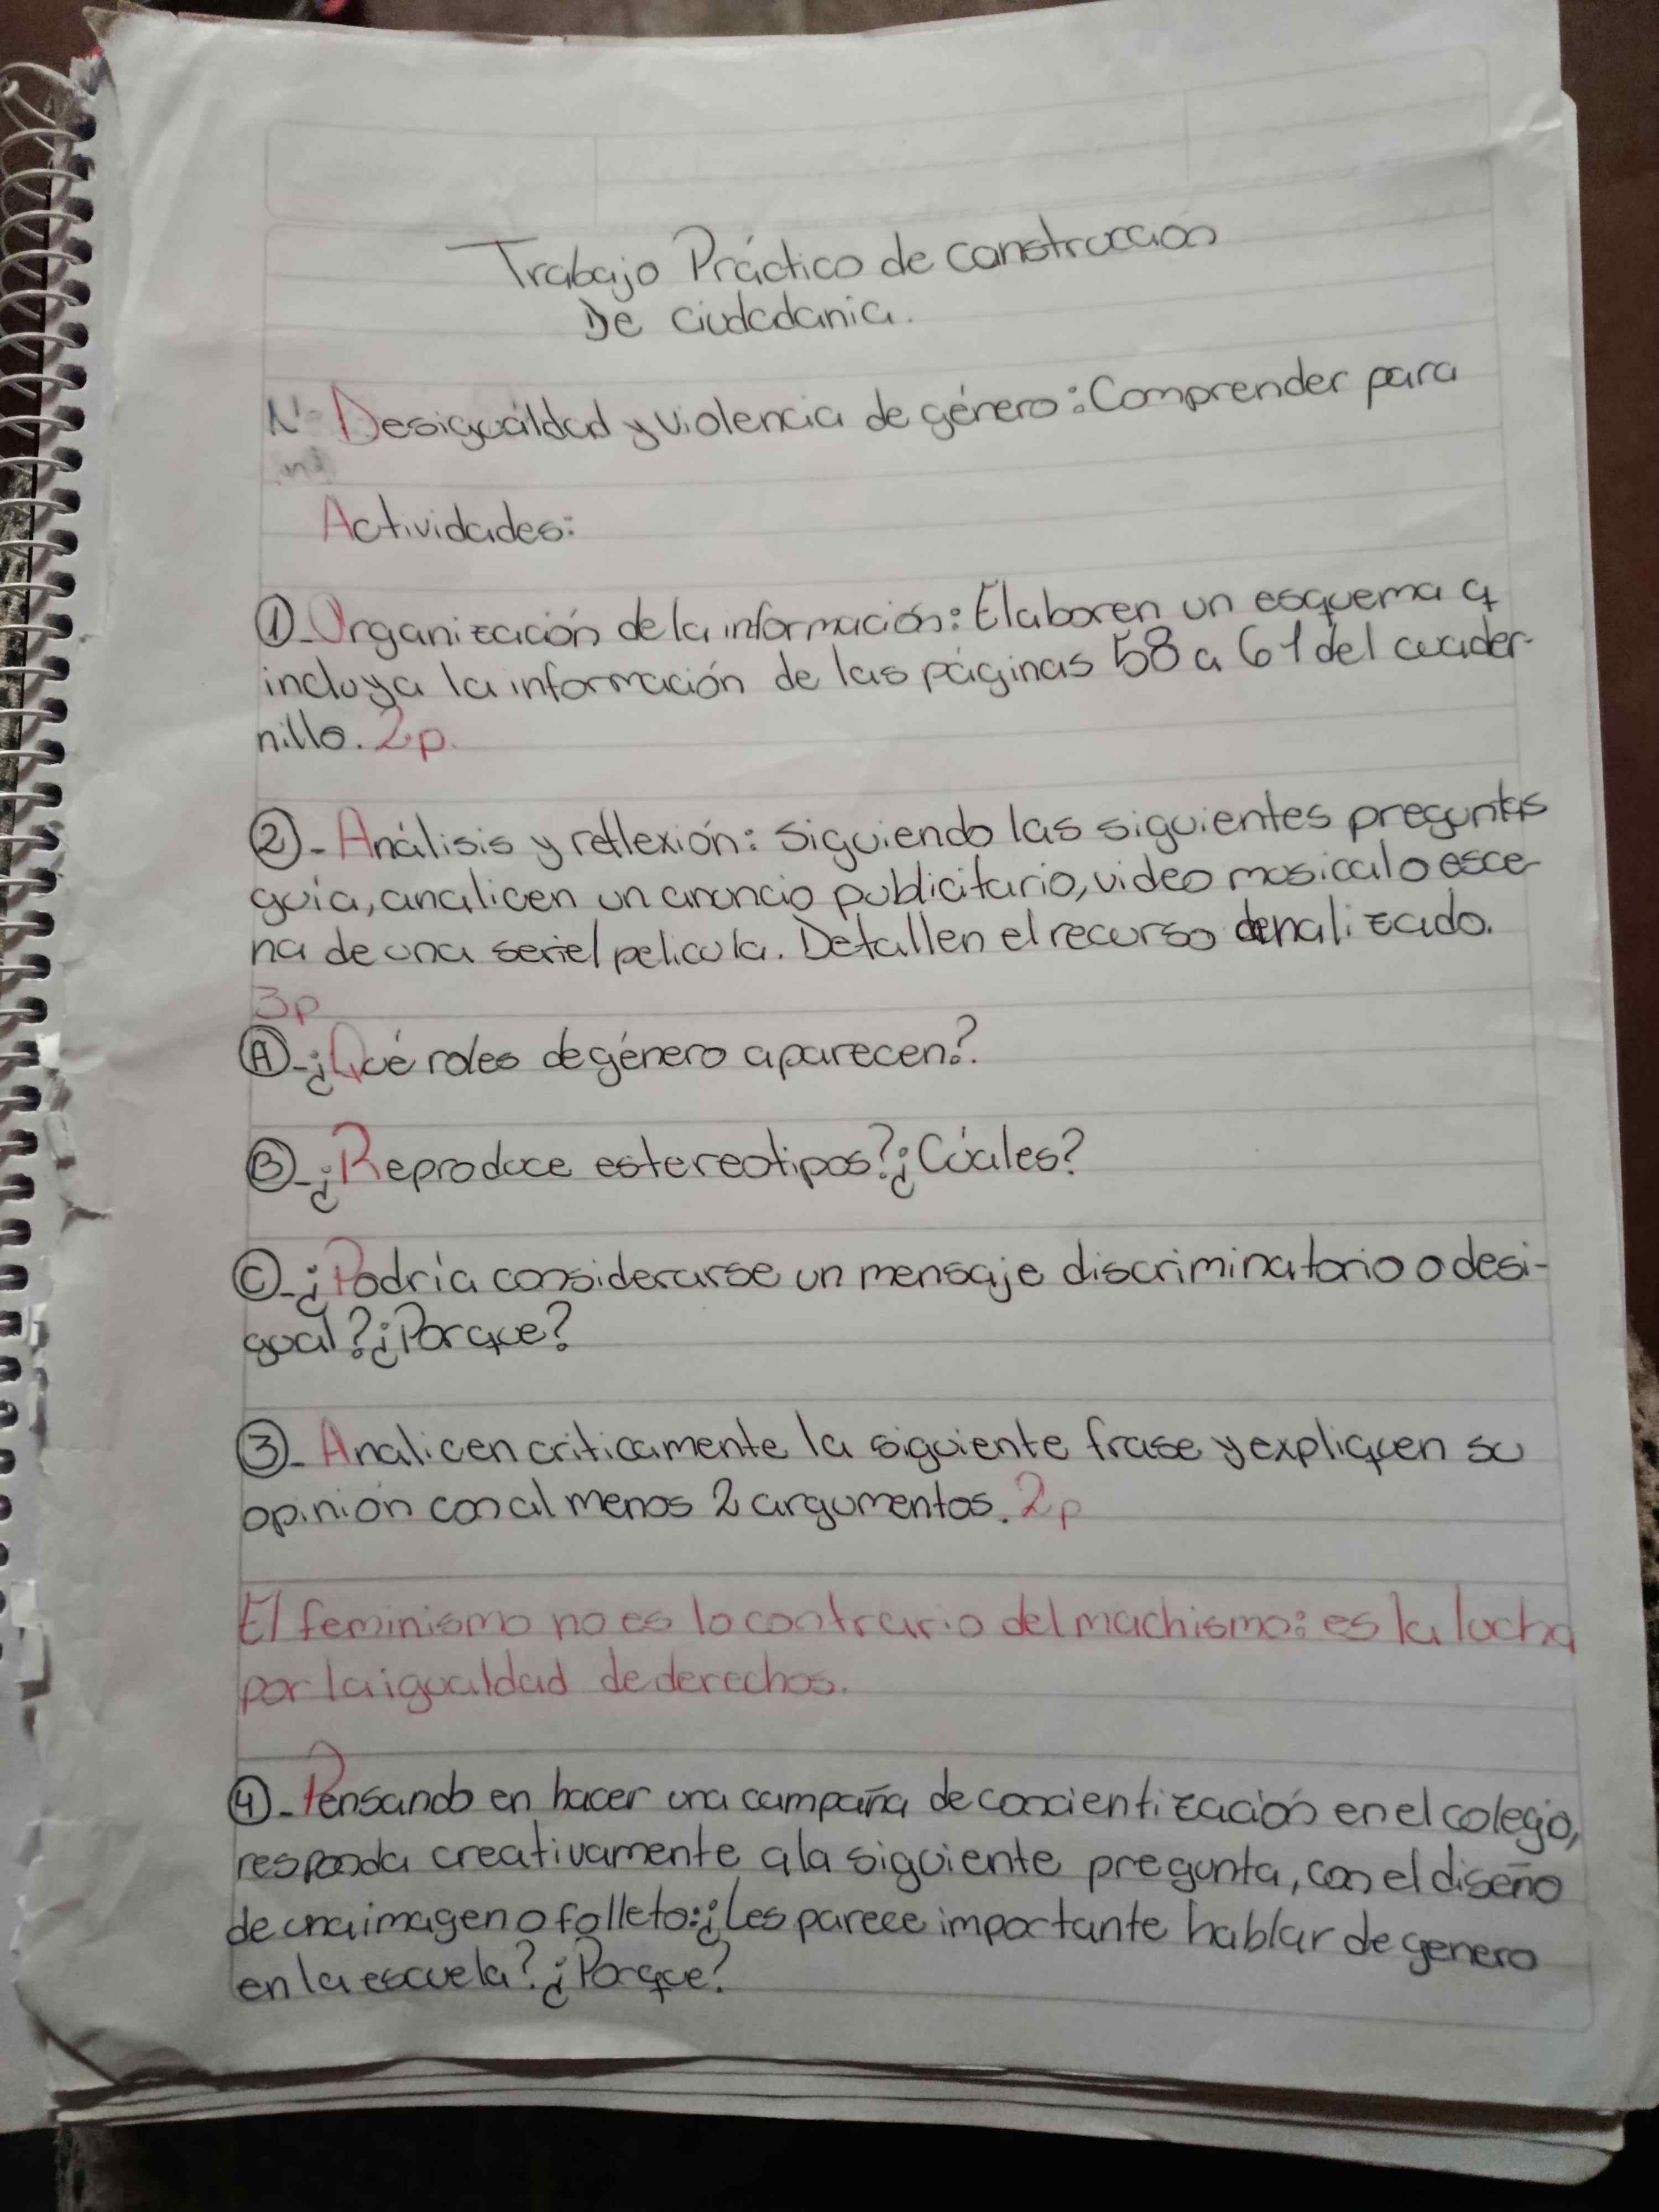 Trabajo Práctico de construcción
De ciudadania.
N° Desigualdad y violencia de género: Comprender para
Actividades:
①-Organización de la información: Elaboren un esquema q
incluya la información de las páginas 58 a 61 del cuader-
nillo. 2p.
②- Análisis y reflexión: Siguiendo las siguientes preguntas
guia, analicen un anuncio publicitario, video musical o esce-
na de una serie/pelicula. Detallen el recurso analizado.
3p
Ⓐ-¿Qué roles de género aparecen?
Ⓑ-¿Reproduce estereotipos? ¿Cúales?
Ⓒ-¿Podría considerarse un mensaje discriminatorio o desi-
gual? ¿Porque?
③- Analicen criticamente la siguiente frase y expliquen su
opinión con al menos 2 argumentos. 2p
El feminismo no es lo contrario del machismo: es la lucha
por la igualdad de derechos.
④- Pensando en hacer una campaña de concientización en el colegio,
responda creativamente a la siguiente pregunta, con el diseño
de una imagen o folleto: ¿Les parece importante hablar de genero
en la escuela? ¿Porque?